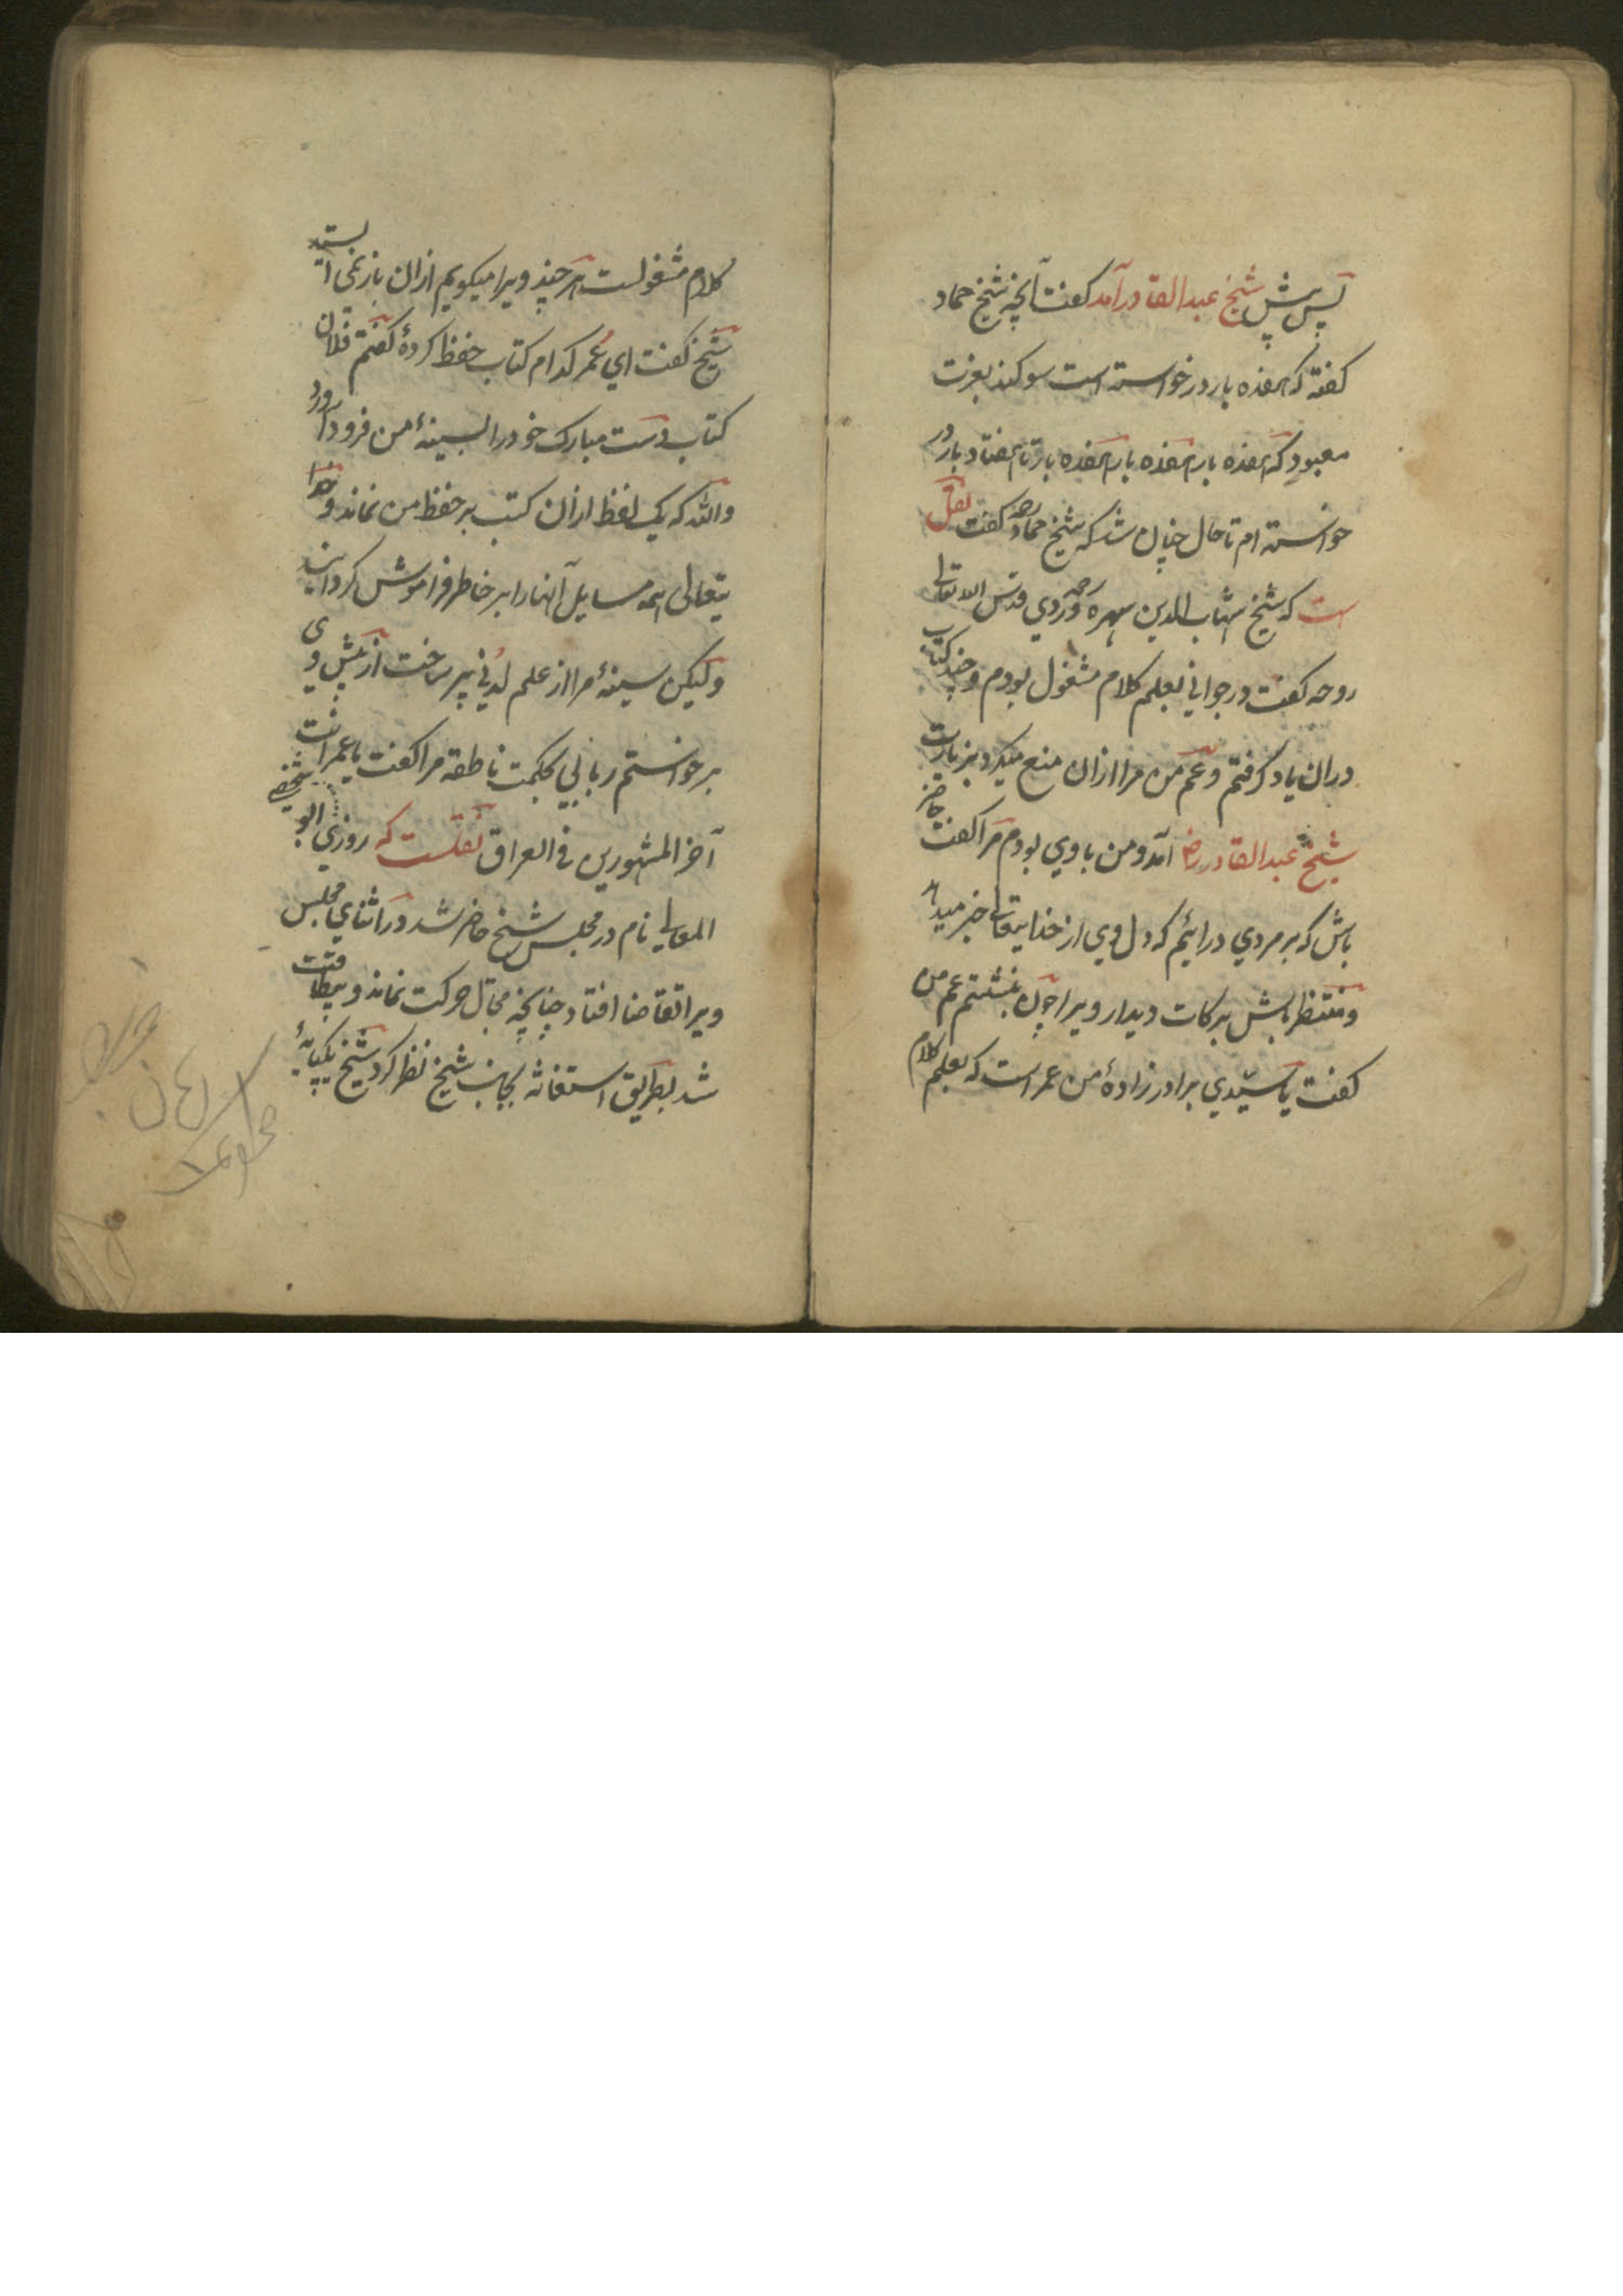 پس پیش شیخ عبدالقادر آمد کفت آنچه شیخ حماد
کفته که هفده بار درخواسته است سوکند بعزت
معبود که هفده بار هفده بار هفده بار تا هفتاد بار در
خواسته ام تا حال چنان شد که شیخ حماد رحمه کفت نقل
است که شیخ شهاب الدین سهروردی قدس الله تعالی
روحه کفت در جوانی بعلم کلام مشغول بودم و چند کتاب
دران یاد کرفتم و عم من مرا ازان منع میکرد بزیارت
شیخ عبدالقادر رض آمد و من با وی بودم مرا کفت حاضر
باش که بر مردی درائیم که دل وی از خدایتعالی خبر میدهد
و منتظر باش برکات دیدار ویرا چون بنشستم عم من
کفت یا سیدی برادر زادهٔ من عمر است که بعلم کلام
کلام مشغولست هر چند ویرا میکویم ازان باز نمی ایستد
شیخ کفت ای عمر کدام کتاب حفظ کردهٔ کفتم فلان
کتاب دست مبارک خود را بسینهٔ من فرود آورد
والله که یک لفظ ازان کتب بر حفظ من نماند و خدا
یتعالی همه مسایل آنها را بر خاطر فراموش کردانید
ولیکن سینهٔ مرا از علم لدنی پر ساخت از پیش وی
برخواستم ربانی بحکمت ناطقه مرا کفت یا عمر انت
آخر المشهورین فی العراق نقلست که روزی شخصی ابو
المعالی نام در مجلس شیخ حاضر شد در اثنای مجلس
ویرا تقاضا افتاد چنانچه مجال حرکت نماند و بیطاقت
شد بطریق استغاثه بجانب شیخ نظر کرد شیخ یکپایهٔ